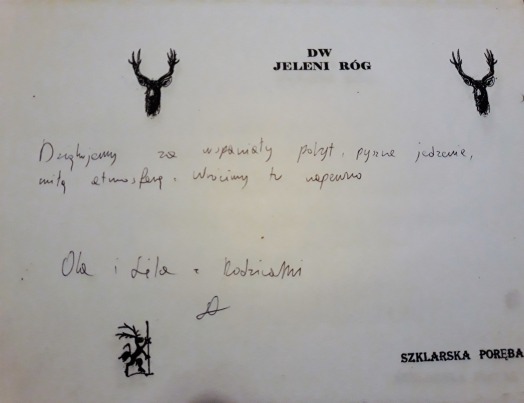 DW
JELENI RÓG
Dziękujemy za wspaniały pobyt, pyszne jedzenie,
miłą atmosferę. Wrócimy tu napewno
Ola i Lila z Rodzicami
SZKLARSKA PORĘBA